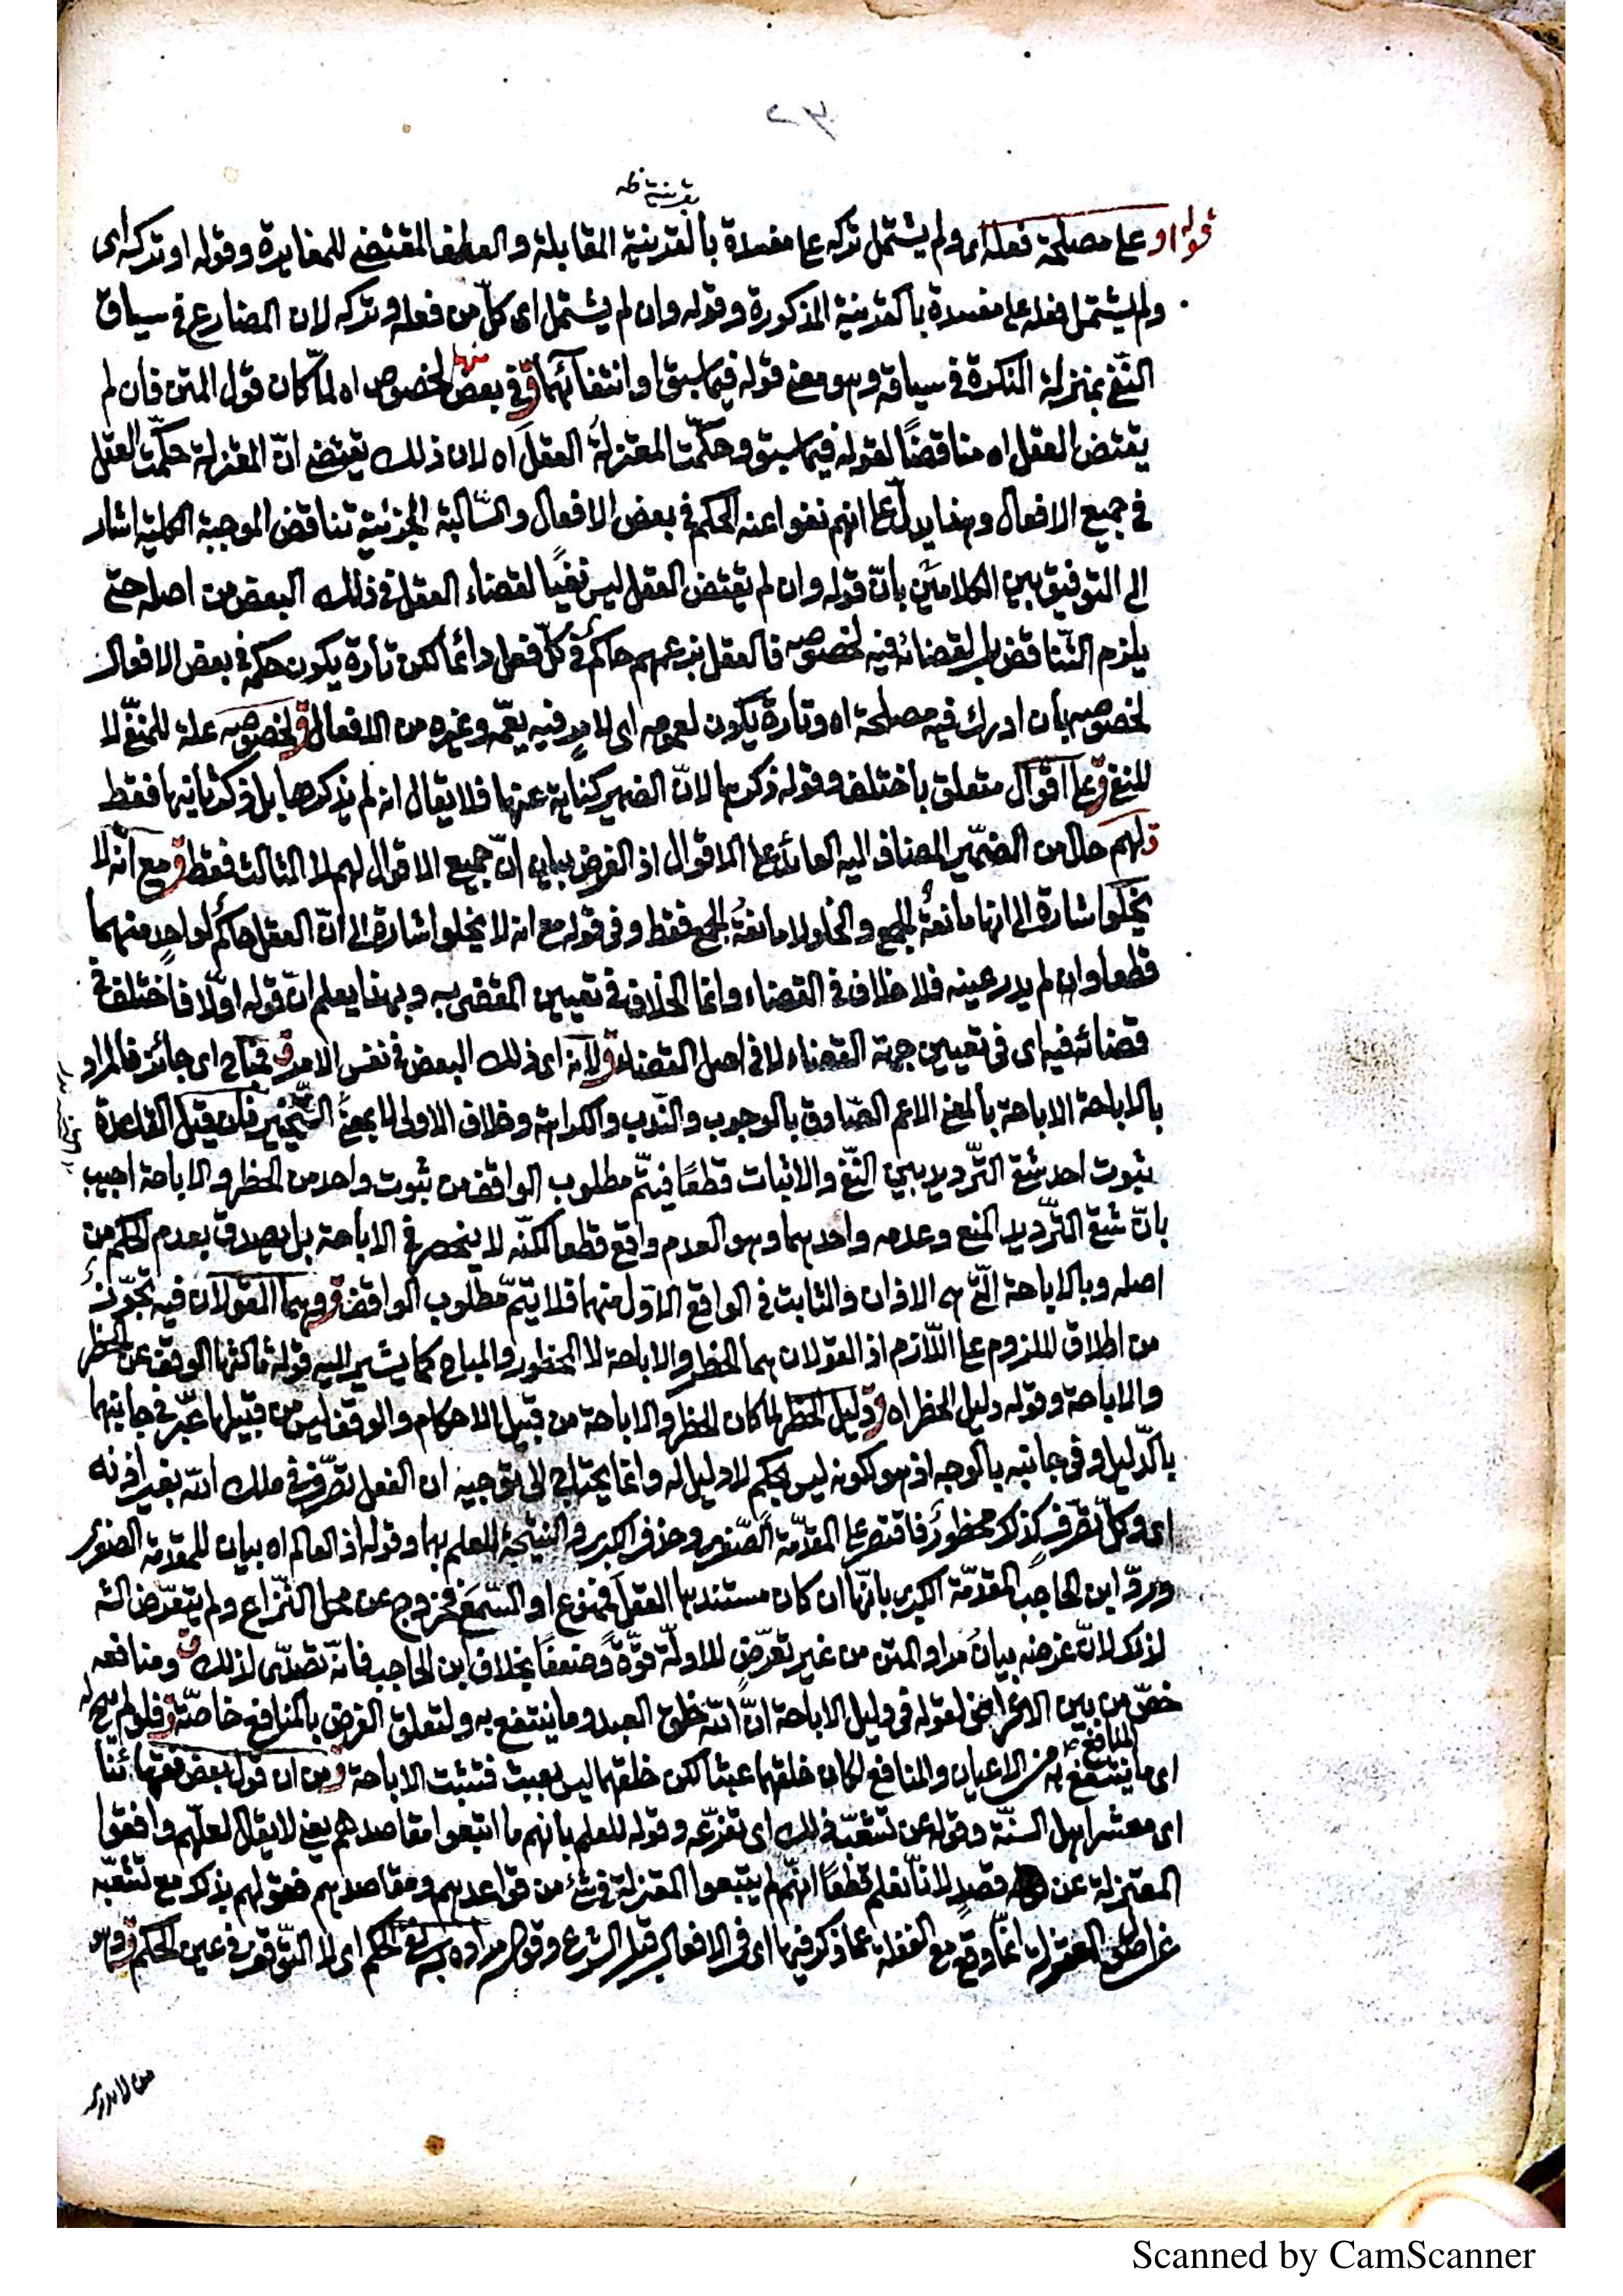 بقرينة ظه
قوله او على مصلحة فعله اى ولم يشتمل تركه على مفسدة بالقرينية المقابلة والعطف المقتضى للمغايرة وقوله او تركه اى
ولم يشتمل فعله على مفسدة بالقرينية المذكورة وقوله وان لم يشتمل اى كلّ من فعله وتركه لان المضارع فى سياق
النّفى بمنزلة النكرة فى سياقه وهو معنى قوله فيما سبق او انتفائهما ق فى بعض منها لخصوص اه لمّا كان قول المتن فان لم
يقتض العقل اه مناقضًا لقوله فيما سبق وحكّمت المعتزلةُ العقلَ اه لان ذلك يقتضى انّ المعتزلة حكّمت العقل
فى جميع الافعال وهذا يدلّ على انهم نفوا عنه الحكم فى بعض الافعال والسّالبة الجزئية تناقض الموجبة الكلية اشار
الى التوفيق بين الكلامين بانّ قوله وان لم يقتض العقل ليس نفيًا لقضاء العقل فى ذلك البعض من اصله حتى
يلزم التّناقض بل لقضائه فيه لخصوصه فالعقل بزعمهم حاكم فى كلّ فعل دائما لكن تارة يكون حكمه فى بعض الافعال
لخصوصه بان ادرك فيه مصلحة اه وتارة يكون لعمومه اى لامر فيه يعمّه وغيره من الافعال ق لخصوصه علة للمنفىّ لا
للنفى ق على اقوال متعلق باختلف وقوله ذكرها لانّ الضمير كناية عنها فلا يقال انه لم يذكرها بل ذكر ثانيها فقط
ق لهم حال من الضمّير المضاف اليه العائد على الاقوال اذ الغرض بيان انّ جميع الاقوال لهم لا الثالث فقط ق مع انه لا
يخلو اشارة الى انها مانعةُ الجمع والخلو لا مانعةُ الجمع فقط وفى قوله مع انه لا يخلو اشارة الى انّ العقل حاكم لواحدٍ منهما
قطعا وان لم يدر عينه فلا خلاف فى القضاء وانما الخلاف فى تعيين المقضى به وبهذا يعلم انّ قوله اوّلا فاختلف فى
قضائه فيه اى فى تعيين جهة القضاء لا فى اصل القضاء ق لانه اى ذلك البعض فى نفس الامر ق فمباح اى جائز فالمراد
بالاباحة الاباحة بالمعنى الاعم الصّادق بالوجوب والنّدب والكراهة وخلاف الاولى لا بمعنى التّخيير فان قيل القاعدة
ثبوت احد شقى التّرديد بين النّفى والاثبات قطعًا فيتمّ مطلوب الواقف من ثبوت واحد من الحظر والاباحة اجيب
بانّ شقى التّرديد المنع وعدمه واحدهما وهو العدم واقع قطعا لكنّه لا ينحصر فى الاباحة بل يصدق بعدم الحكم من
اصله وبالاباحة الّتى هى الاذان والثابت فى الواقع الاوّل منهما فلا يتمّ مطلوب الواقف ق وهما القولان فيه تجوّزٌ
من اطلاق الملزوم على اللّازم اذ القولان هما الحظر والاباحة لا المحظور والمباح كما يشير اليه قوله ثالثها الوقف عن الحظر
والاباحة وقوله دليل الحظر اه ق دليل الحظر لما كان الحظر والاباحة من قبيل الاحكام والوقف ليس من قبيلها عبّر فى جانبهما
بالدّليل وفى جانبه بالوجه اذ هو لكونه ليس بحكم لا دليل له وانما يحتاج الى توجيه ان الفعل تصرّف فى ملك الله بغير اذنه
اى وكلّ تصرّفٍ كذلك محظورٌ فاقتصر على المقدّمة الصّغرى وحذف الكبرى والنتيجة للعلم بها وقوله اذ العالم اه بيان للمقدمة الصغرى
وردّ ابن الحاجب المقدّمة الكبرى بانّها ان كان مستندها العقلَ فممنوع او السّمعَ فخروج عن محل النّزاع ولم يتعرّض الشه
لذلك لانّ غرضه بيانُ مراد المتن من غير تعرّضٍ للادلّة قوّةً وضعفًا بخلاف ابن الحاجب فانّه تصدّى لذلك ق ومنافعه
خصّ من بين الاعراض لقوله فى دليل الاباحة انّ الله خلق العبد وما ينتفع به ولتعلق الغرض بالمنافع خاصّة ق فلو لم يبح له
اى ما ينتفع به من الاعيان والمنافع لكان خلقهما عبثا لكن خلقهما ليس بعبث فتثبت الاباحة ق من ان قول بعض فقهائنا
اى معشر اهل السنّة وقوله عن تشعّبه ذلك اى تفرّعه وقوله للعلم بانهم ما اتبعوا مقاصدهم يعنى لا يقال لعلّهم وافقوا
المعتزلة عن قصدٍ لانّا نعلم قطعًا انّهم لم يتبعوا المعتزلة فى شئ من قواعدهم ومقاصدهم فقولهم بذلك مع تشعّبه
عن اصل المعتزلة انّما وقع مع الغفلة عما ذكر فيها اى فى الافعال قبل الشرع وقوله مراده به نفى الحكم اى لا التّوقف فى عين الحكم ق وهو
من لا يدرى
Scanned by CamScanner